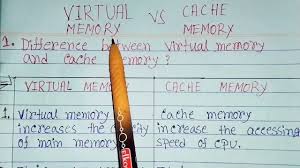 VIRTUAL VS CACHE
MEMORY MEMORY
1. Difference between Virtual memory
and Cache memory ?
VIRTUAL MEMORY CACHE MEMORY
1. Virtual memory
increases the capacity
of main memory.
Cache memory
increase the accessing
speed of CPU.